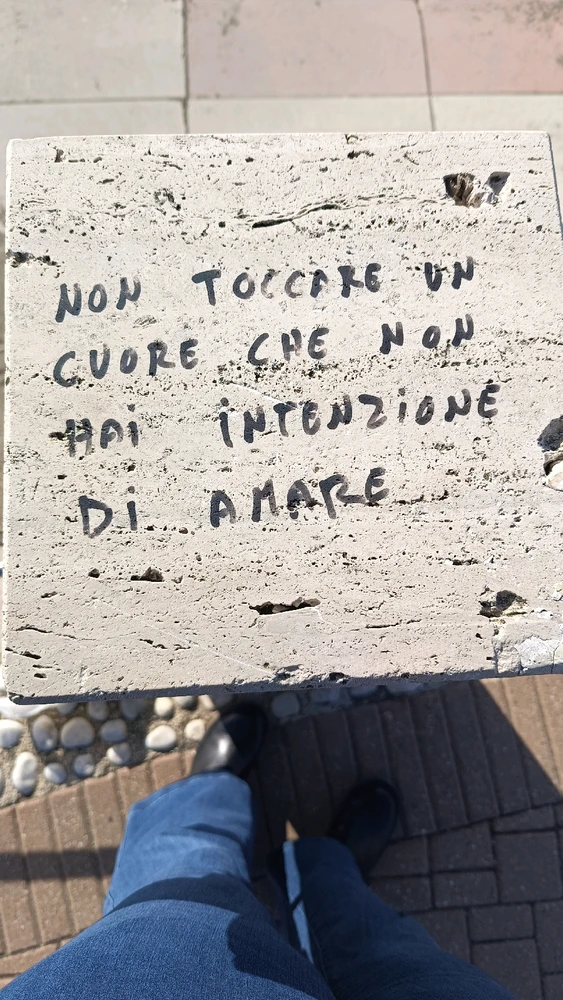 NON TOCCARE UN
CUORE CHE NON
HAi iNTENZiONE
Di AMARE